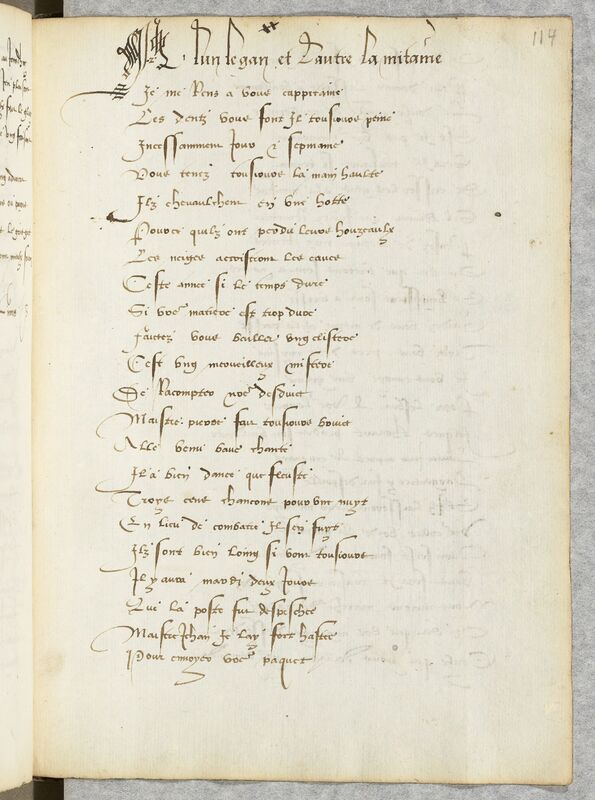 114
A lun le gan et Lautre La mitaine
Je me Rens a vous cappitaine
Les dentz vous font Il tousiours peine
Incessamment Jour & sepmaine
Vous tenez tousiours la main haulte
Ilz chevaulchent en une hotte
Pource quilz ont perdu leurs houzeaulx
Les neiges accroistront les eaues
Ceste annee si le temps dure
Si vostre matiere est trop dure
Faictez vous bailler ung clistere
Cest ung merveilleux mistere
De Racompter nostre desduict
Maistre pierre fait tousiours bruict
Alle venu baue chante
Il a bien dance que fleuste
Troys cens chancons pour une nuyt
En lieu de combatre Il sen fuyt
Ilz sont bien loing si vont tousiours
Il y aura mardi deux Jours
Que la poste fut despeschee
Maistre Jehan Je lay fort hastee
Pour envoyer vostre pacquet